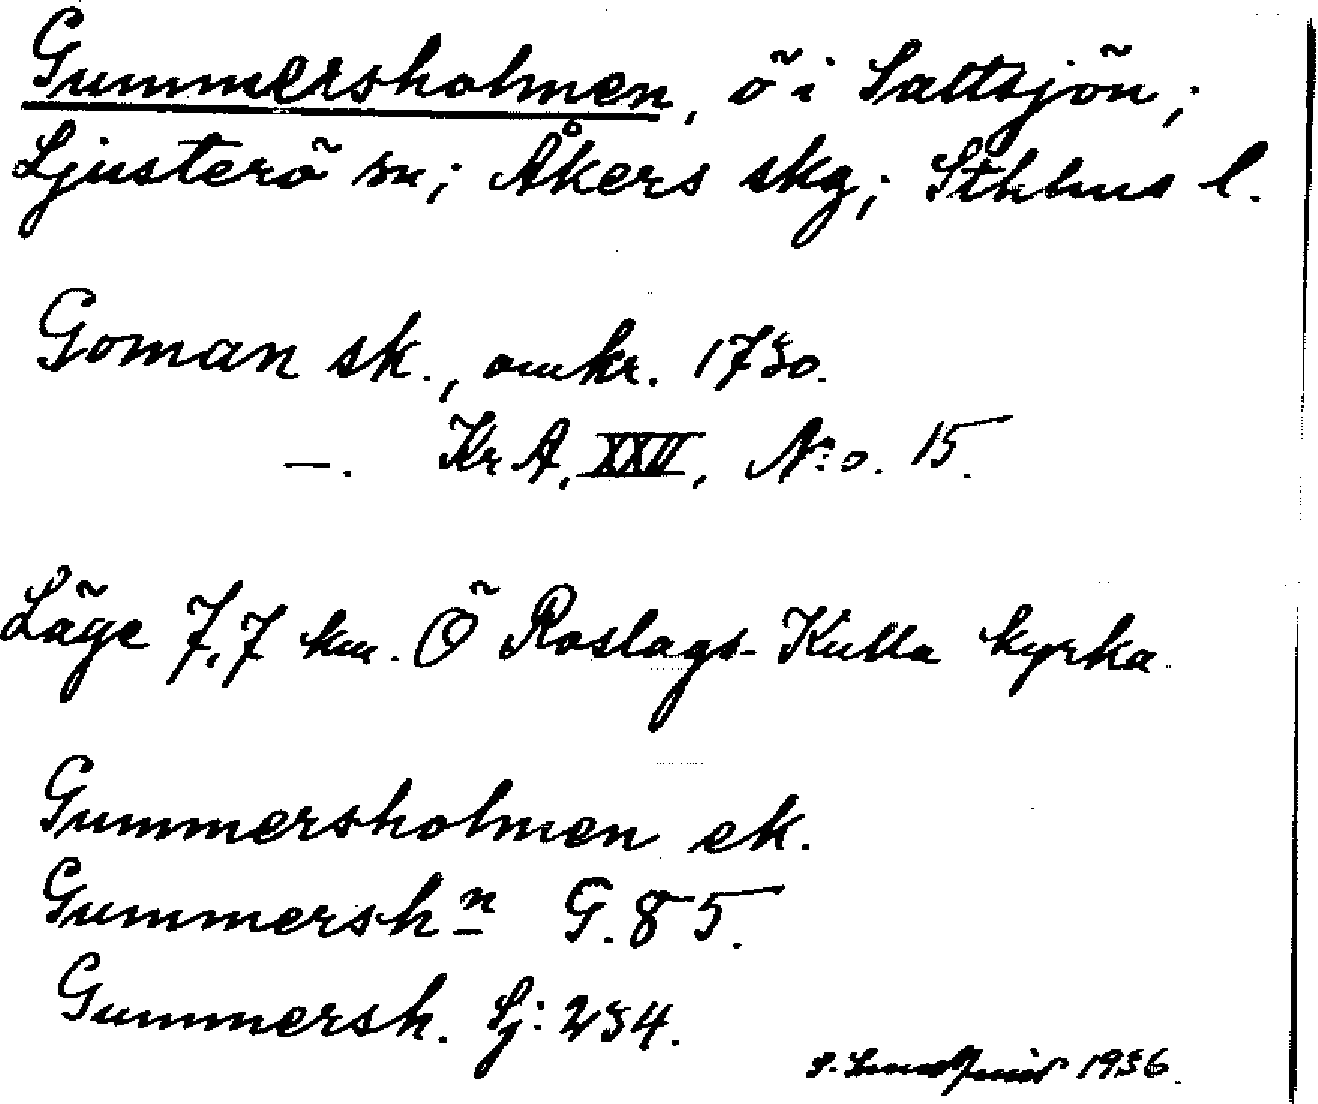 Gummersholmen, ö i Saltsjön;
Ljusterö sn; Åkers skg; Sthlms l.
Goman sk., omkr. 1730.
—. Kr A, XXII, N:o. 15.
Läge 7,7 km. Ö Roslags-Kulla kyrka.
Gummersholmen ek.
Gummershn G.85.
Gummersh. Sj: 234.
1936.